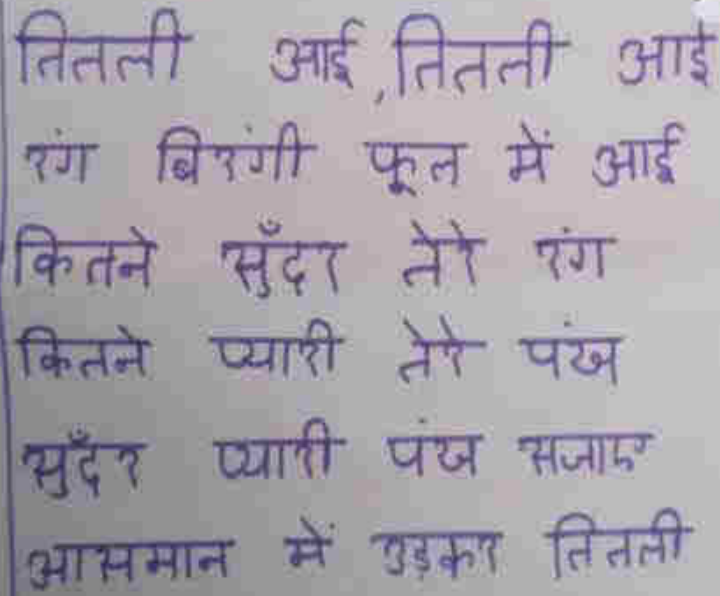 तितली आई,तितली आई
रंग बिरंगी फूल में आई
कितने सुँदर तेरे रंग
कितने प्यारी तेरे पंख
सुँदर प्यारी पंख सजाए
आसमान में उड़कर तितली